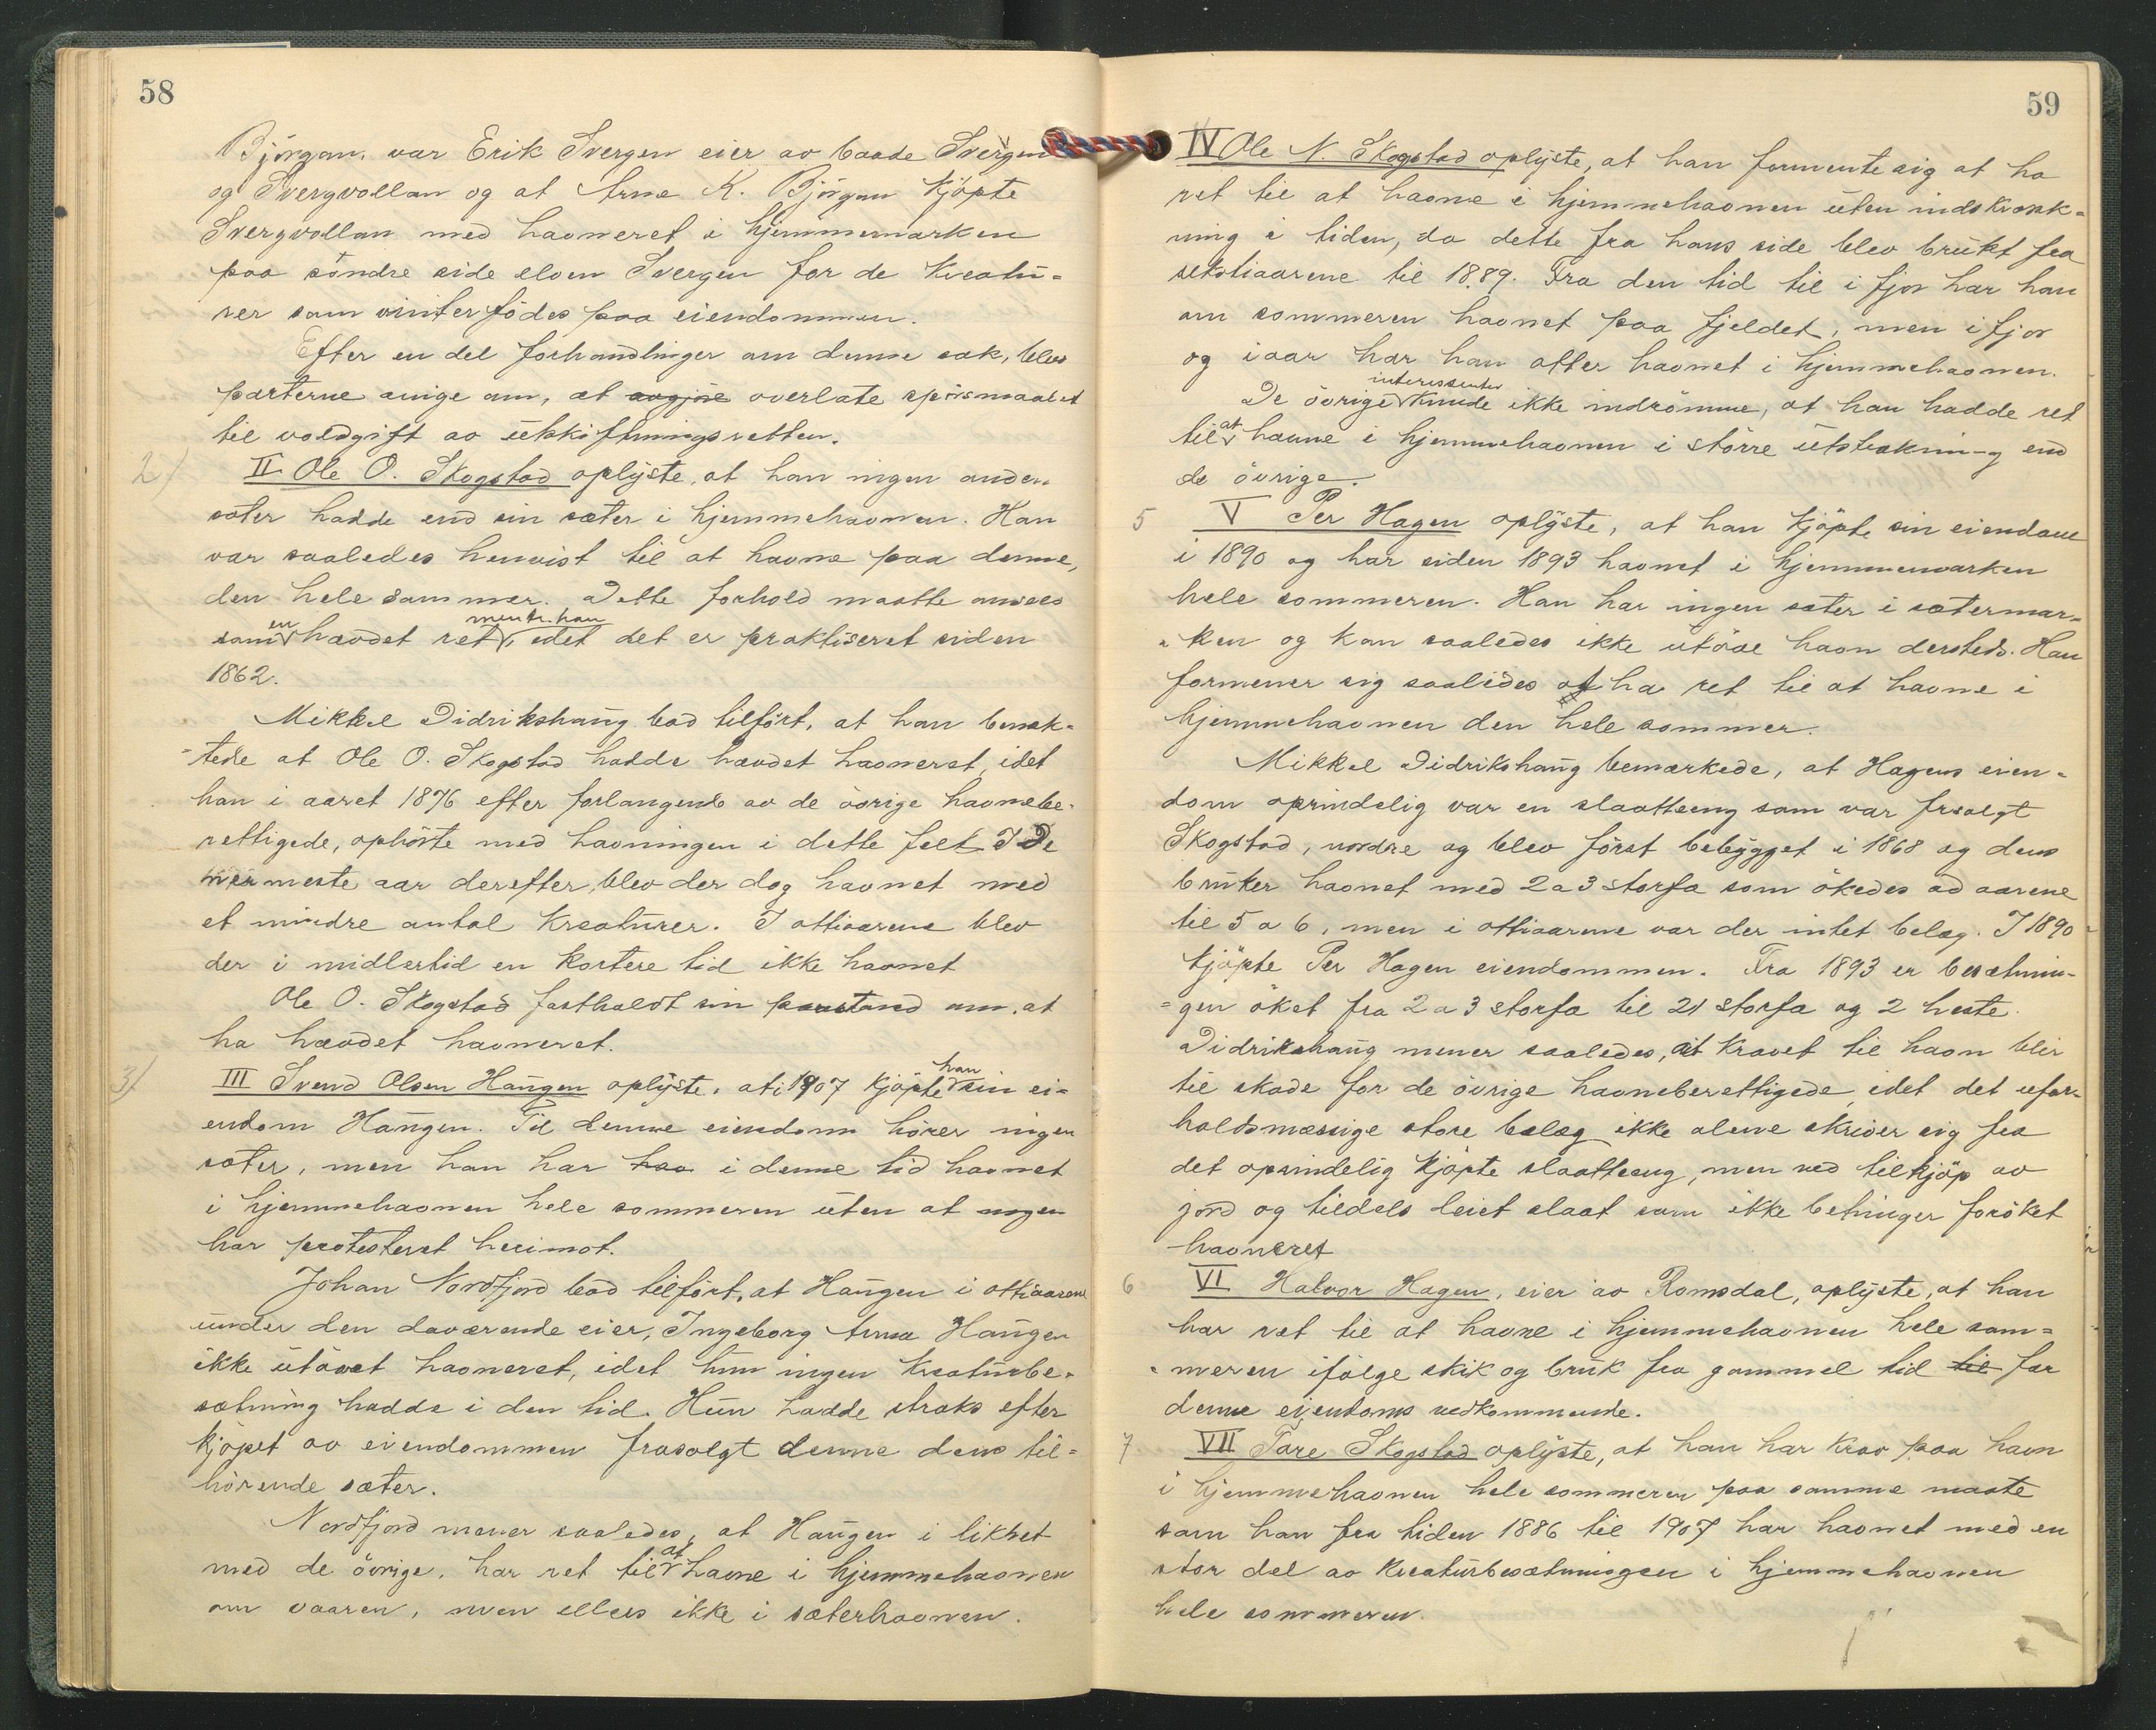 58
Björgan, var Erik Svergen eier av baade Svergen
og Svergvollan og at Arne K. Björgan kjöpte
Svergvollan med havneret i hjemmemarken
paa söndre side elven Svergen for de kreatu-
rer som vinterfödes paa eiendommen.
Efter en del forhandlinger om denne sak, blev
parterne enige om, at avgjöre overlate spörsmaalet
til voldgift av utskiftningsretten.
2) II Ole O. Skogstad oplyste, at han ingen anden
sæter hadde end sin sæter i hjemmehavnen. Han
var saaledes henvist til at havne paa denne,
den hele sommer. Dette forhold maatte ansees
som en hævdet ret, mente han, idet det er praktiseret siden
1862.
Mikkel Didrikshaug bad tilfört, at han benek-
-tede at Ole O. Skogstad hadde hævdet havneret, idet
han i aaret 1876 efter forlangende av de övrige havnebe-
rettigede, ophörte med havningen i dette felt. I De
nærmeste aar derefter, blev der dog havnet med
et mindre antal kreaturer. I ottiaarene blev
der i midlertid en kortere tid ikke havnet
Ole O. Skogstad fastholdt sin paastand om, at
ha hævdet havneret.
3) III Svend Olsen Haugen oplyste, at i 1907 kjöpte han sin ei-
endom Haugen. Til denne eiendom hörer ingen
sæter, men han har haa i denne tid havnet
i hjemmehavnen hele sommeren uten at ingen
har protesteret herimot.
Johan Nordfjord bad tilfört, at Haugen i ottiaarene
under den daværende eier, Ingeborg Anna Haugen
ikke utövet havneret, idet hun ingen kreaturbe-
sætning hadde i den tid. Hun hadde straks efter
kjöpet av eiendommen frasolgt denne dens til-
hörende sæter.
Nordfjord mener saaledes, at Haugen i likhet
med de övrige, har ret til at havne i hjemmehavnen
om vaaren, men ellers ikke i sæterhavnen.
59
IV Ole N. Skogstad oplyste, at han formente sig at ha
ret til at havne i hjemmehavnen uten indskrænk-
ning i tiden, da dette fra hans side blev brukt fra
sekstiaarene til 1889. Fra den tid til i fjor har han
om sommeren havnet paa fjeldet, men i fjor
og i aar har han atter havnet i hjemmehavnen.
De övrige interessenter kunde ikke indrömme, at han hadde ret
til at havne i hjemmehavnen i större utstrækning end
de övrige.
5 V Per Hagen oplyste, at han kjöpte sin eiendom
i 1890 og har siden 1893 havnet i hjemmemarken
hele sommeren. Han har ingen sæter i sætermar-
-ken og kan saaledes ikke utöve havn dersteds. Han
formener sig saaledes at ha ret til at havne i
hjemmehavnen den hele sommer.
Mikkel Didrikshaug bemærkede, at Hagens eien-
dom oprindelig var en slaatteeng som var frasolgt
Skogstad, nordre og blev först bebygget i 1868 og dens
bruker havnet med 2 a 3 storfæ som ökedes ad aarene
til 5 a 6, men i ottiaarene var der intet belæg. I 1890
kjöpte Per Hagen eiendommen. Fra 1893 er besætnin-
-gen öket fra 2 a 3 storfæ til 21 storfæ og 2 heste.
Didrikshaug mener saaledes, at kravet til havn blir
til skade for de övrige havneberettigede, idet det ufor-
holdsmæssige store belæg ikke alene skriver sig fra
det oprindelig kjöpte slaatteeng, men ved tilkjöp av
jord og tildels leiet slaat som ikke betinger foröket
havneret
6 VI Halvor Hagen, eier av Romsdal, oplyste, at han
har ret til at havne i hjemmehavnen hele som-
-meren ifölge skik og bruk fra gammel tid til for
denne eiendoms vedkommende.
7 VII Tore Skogstad oplyste, at han har krav paa havn
i hjemmehavnen hele sommeren paa samme maate
som han fra tiden 1886 til 1907 har havnet med en
stor del av kreaturbesætningen i hjemmehavnen
hele sommeren.